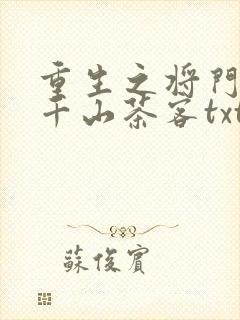 重生之将門
千山茶客txt
蘇俊賓